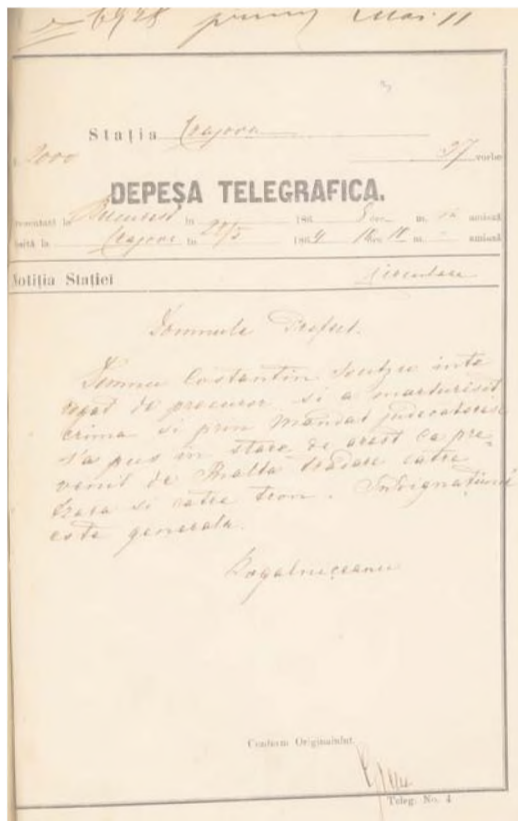 6928 primit Mai 11
Stația Craiova
2000 37 vorbe
DEPEȘA TELEGRAFICA.
Presentat la Bucuresci in 22/5 186 m. amiază
la Craiova in 1864 m. amiază
Notiția Stației circulara
Domnule Prefect.
Domnu Costantin Soutzo inte
rogat de procuror si a marturisit
crima si prin mandat judecatoresc
s'a pus in stare de arest ca pre-
venit de Inalta tradare catre
tzara si catre tron. Indignațiunea
este generala.
Cogalniceanu
Conform Originalului.
Teleg. No. 4